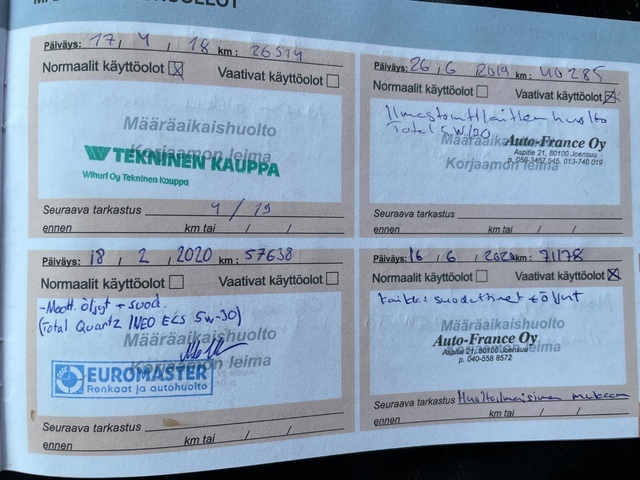 Päiväys: 17, 4, 18 km: 26514
Normaalit käyttöolot Vaativat käyttöolot
Määräaikaishuolto
Korjaamon leima
TEKNINEN KAUPPA
Wihuri Oy Tekninen Kauppa
Seuraava tarkastus 4 / 19
ennen km tai / /
Päiväys: 26, 6 2019 km: 40285
Normaalit käyttöolot Vaativat käyttöolot
huolto
Total 5W/30
Määräaikaishuolto
Auto-France Oy
Aspitie 21, 80100 Joensuu
Korjaamon leima
Seuraava tarkastus
ennen km tai / /
Päiväys: 18, 2, 2020 km: 57638
Normaalit käyttöolot Vaativat käyttöolot
-Moott. öljyt + suod.
(Total Quartz INEO ECS 5W-30)
Määräaikaishuolto
Korjaamon leima
EUROMASTER
Renkaat ja autohuolto
Seuraava tarkastus
ennen km tai / /
Päiväys: 16, 6, km: 71178
Normaalit käyttöolot Vaativat käyttöolot
kaikki suodattimet + öljyt
Määräaikaishuolto
Auto-France Oy
Aspitie 21, 80100 Joensuu
Korjaamon leima
p. 040-558 8572
Seuraava tarkastus Huolto-ohjelman mukaan
ennen km tai / /